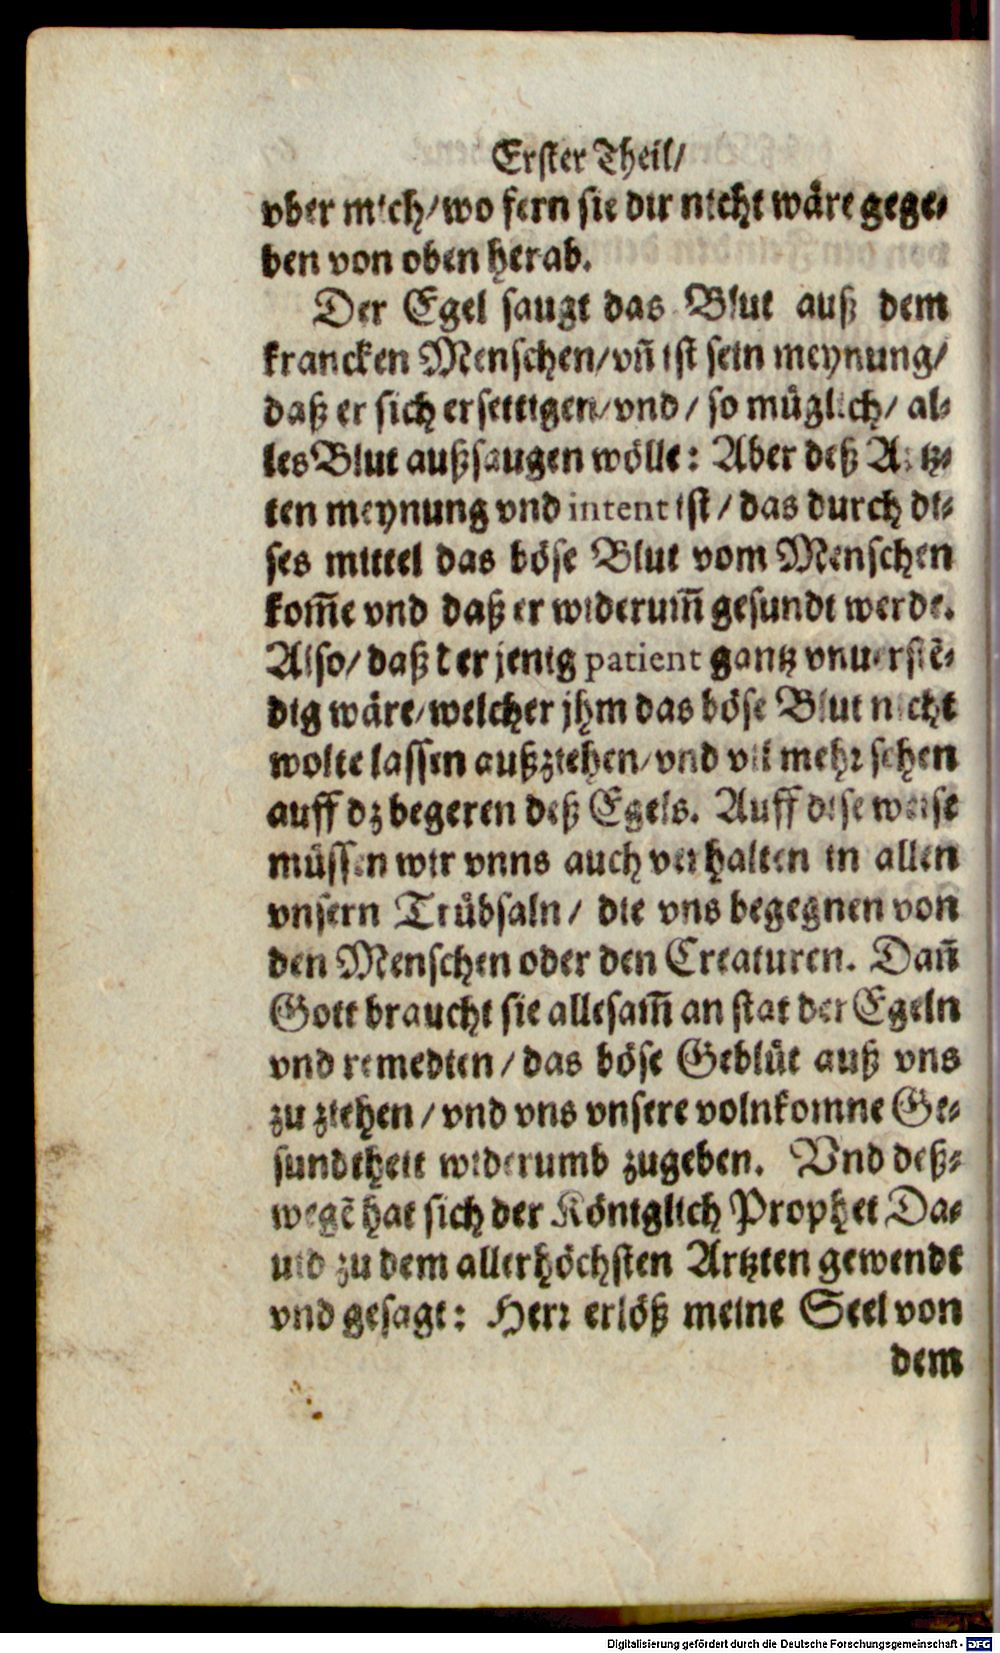 Erster Theil/
vber mich/ wo fern sie dir nicht wäre gege-
ben von oben herab.
Der Egel saugt das Blut auß dem
krancken Menschen/ vñ ist sein meynung/
daß er sich ersettigen/ vnd / so müglich/ al-
les Blut außsaugen wölle: Aber deß Artz-
ten meynung vnd intent ist / das durch di-
ses mittel das böse Blut vom Menschen
kom̃e vnd daß er widerum̃ gesundt werde.
Also/ daß der jenig patient gantz vnuerstẽ-
dig wäre/ welcher jhm das böse Blut nicht
wolte lassen außziehen/ vnd vil mehr sehen
auff dz begeren deß Egels. Auff dise weise
müssen wir vnns auch verhalten in allen
vnsern Trübsaln/ die vns begegnen von
den Menschen oder den Creaturen. Dañ
Gott braucht sie allesam̃ an stat der Egeln
vnd remedien / das böse Geblüt auß vns
zu ziehen / vnd vns vnsere volnkomne Ge-
sundtheit widerumb zugeben. Vnd deß-
wegẽ hat sich der Königlich Prophet Da-
uid zu dem allerhöchsten Artzten gewendt
vnd gesagt: Herr erlöß meine Seel von
dem
Digitalisierung gefördert durch die Deutsche Forschungsgemeinschaft - DFG